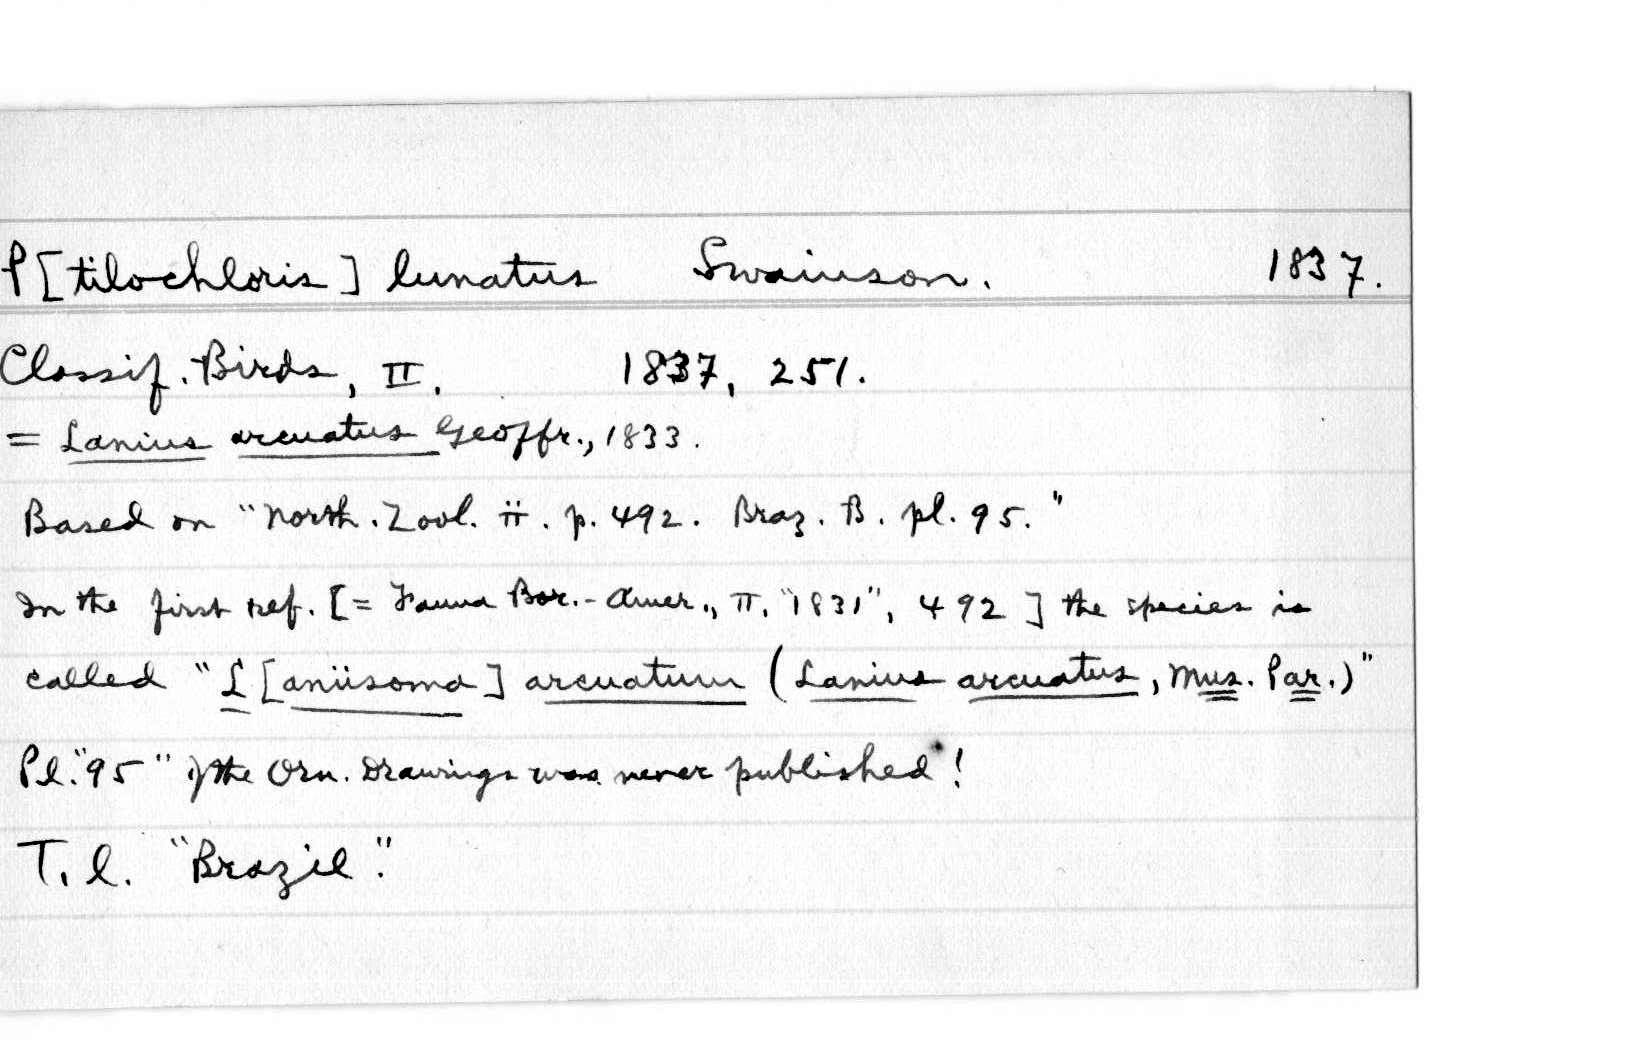 P[tilochloris] lunatus Swainson. 1837.
Classif. Birds, II. 1837, 251.
= Lanius arcuatus Geoffr., 1833.
Based on "North. Zool. ii. p. 492. Braz. B. pl. 95."
In the first ref. [= Fauna Bor.-Amer., II, "1831", 492] the species is
called "L[aniisoma] arcuatum (Lanius arcuatus, Mus. Par.)"
Pl. "95" of the Orn. Drawings was never published!
T. l. "Brazil".